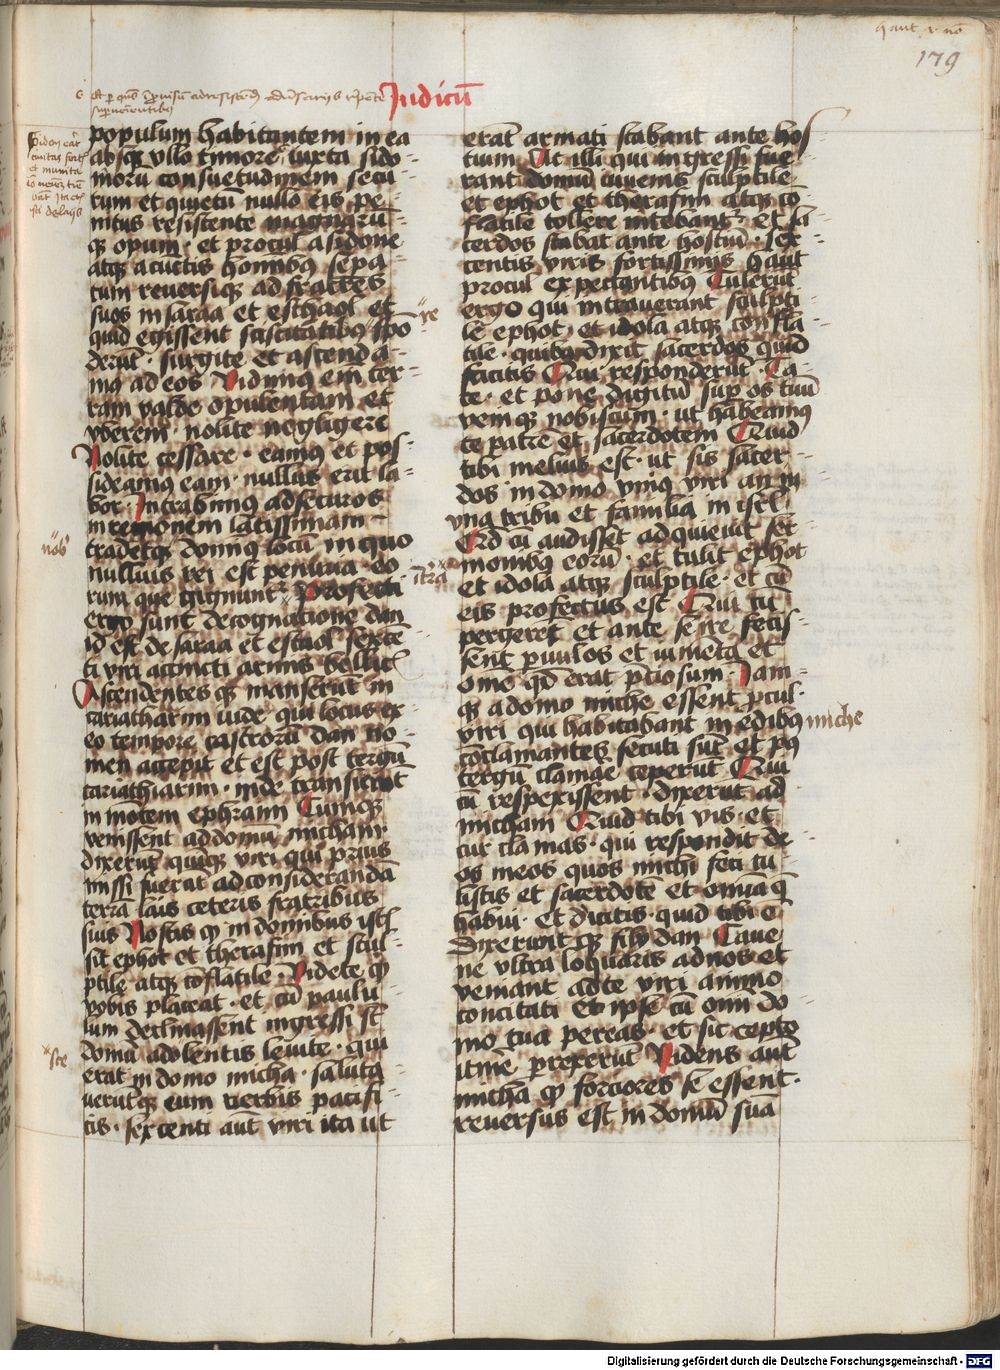 179
Judicū
populum habitantem in ea
absq; vllo timore iuxta sido-
moru consuetudinem secu
rum et quietū nullo eis pe-
nitus resistente magnarū
q; opum · et procul a sidone
atq; a cunctis hominibus sepa-
tum reversiq; ad fratres
suos in saraa et esthaol et
quid egissent sciscitatibus spo
re
derūt · surgite et ascenda-
mus ad eos Vidimus em̄ ter-
ram valde opulentam et
vberem · nolite negligere
Nolite cessare · eamus et pos-
sideamus eam · nullus erit la-
bor · Intrabimus ad securos
in remonem latissimam
tradetq; dominus locū in quo
nob
nullius rei est penuria · eo
rum que gignunt Profecti
itrā
ergo sunt de cognatione dan
id est de saraa et estaol sexcē
ti viri accincti armis bellic
Ascendentes q; manserūt in
cariathiarim iude qui locus ex
eo tempore castrorū dan no-
men accepit et est post tergū
cariathiarim · inde transierūt
in montem ephraim Cumq;
venissent ad domū micham
dixerūt quinq; viri qui prius
missi fuerāt ad considerandā
terrā lais ceteris fratribus
suis Nostis q in domibus ist
sit ephot et therafim et scul-
ptile atq; cōflatile · Videte q
vobis placeat · et cū paulu
lum declinassent ingressi st
domū adolentis leuite · qui
sce
erat in domo micha · saluta
verūtq; eum verbis pacifi
cis · sexcenti aūt viri ita ut
erāt armati stabant ante hos
tium At illi qui ingressi fue
rant domū iuvenis sculptile
et ephot et therafim atq; cō
flatile tollere intebant et sa
cerdos stabat ante hostiū · sex
centis viris fortissimis haut
procul expectantibus Tulerūt
ergo qui intraverant sculpti
le ephot · et idola atq; confla
tile · quibus dixit sacerdos quid
facitis Qui responderūt Ta
te · et pone digitū super os tuū
vemq; nobiscum · ut habeamus
te patre et sacerdotem Quid
tibi melius est · ut sis sacer-
dos in domo vnius viri an in
vna tribu et familia in isrl
Qd cū audisset adquievit ser
monibus eorū · et tulit ephot
et idola atq; sculptile · et cū
eis profectus est Qui cū
pergeret et ante se ire fecis-
sent p̄uulos et iumēta et
omē qd erat p̄ciosum · Jam
q; a domo miche essent p̄cul ·
viri qui habitabant in edibus miche
cōclamantes secuti sūt et p̄
tergū clamāe ceperūt Qui
cū respexissent · dixerūt ad
micham Quid tibi vis · et
cur clamas · qui respondit de
os meos quos michi feci tu
listis et sacerdotē et omia q
habui · et dicitis · quid tibi ē
Dixerunt q; filij dan Cave
ne vltra loquaris ad nos et
veniant ad te viri animo
concitati et ipse cū omi do
mo tua pereas · et sic cepto
itine p̄rexerūt Videns aūt
micha q fortiores se essent ·
reversus est in domū suā
Digitalisierung gefördert durch die Deutsche Forschungsgemeinschaft - DFG